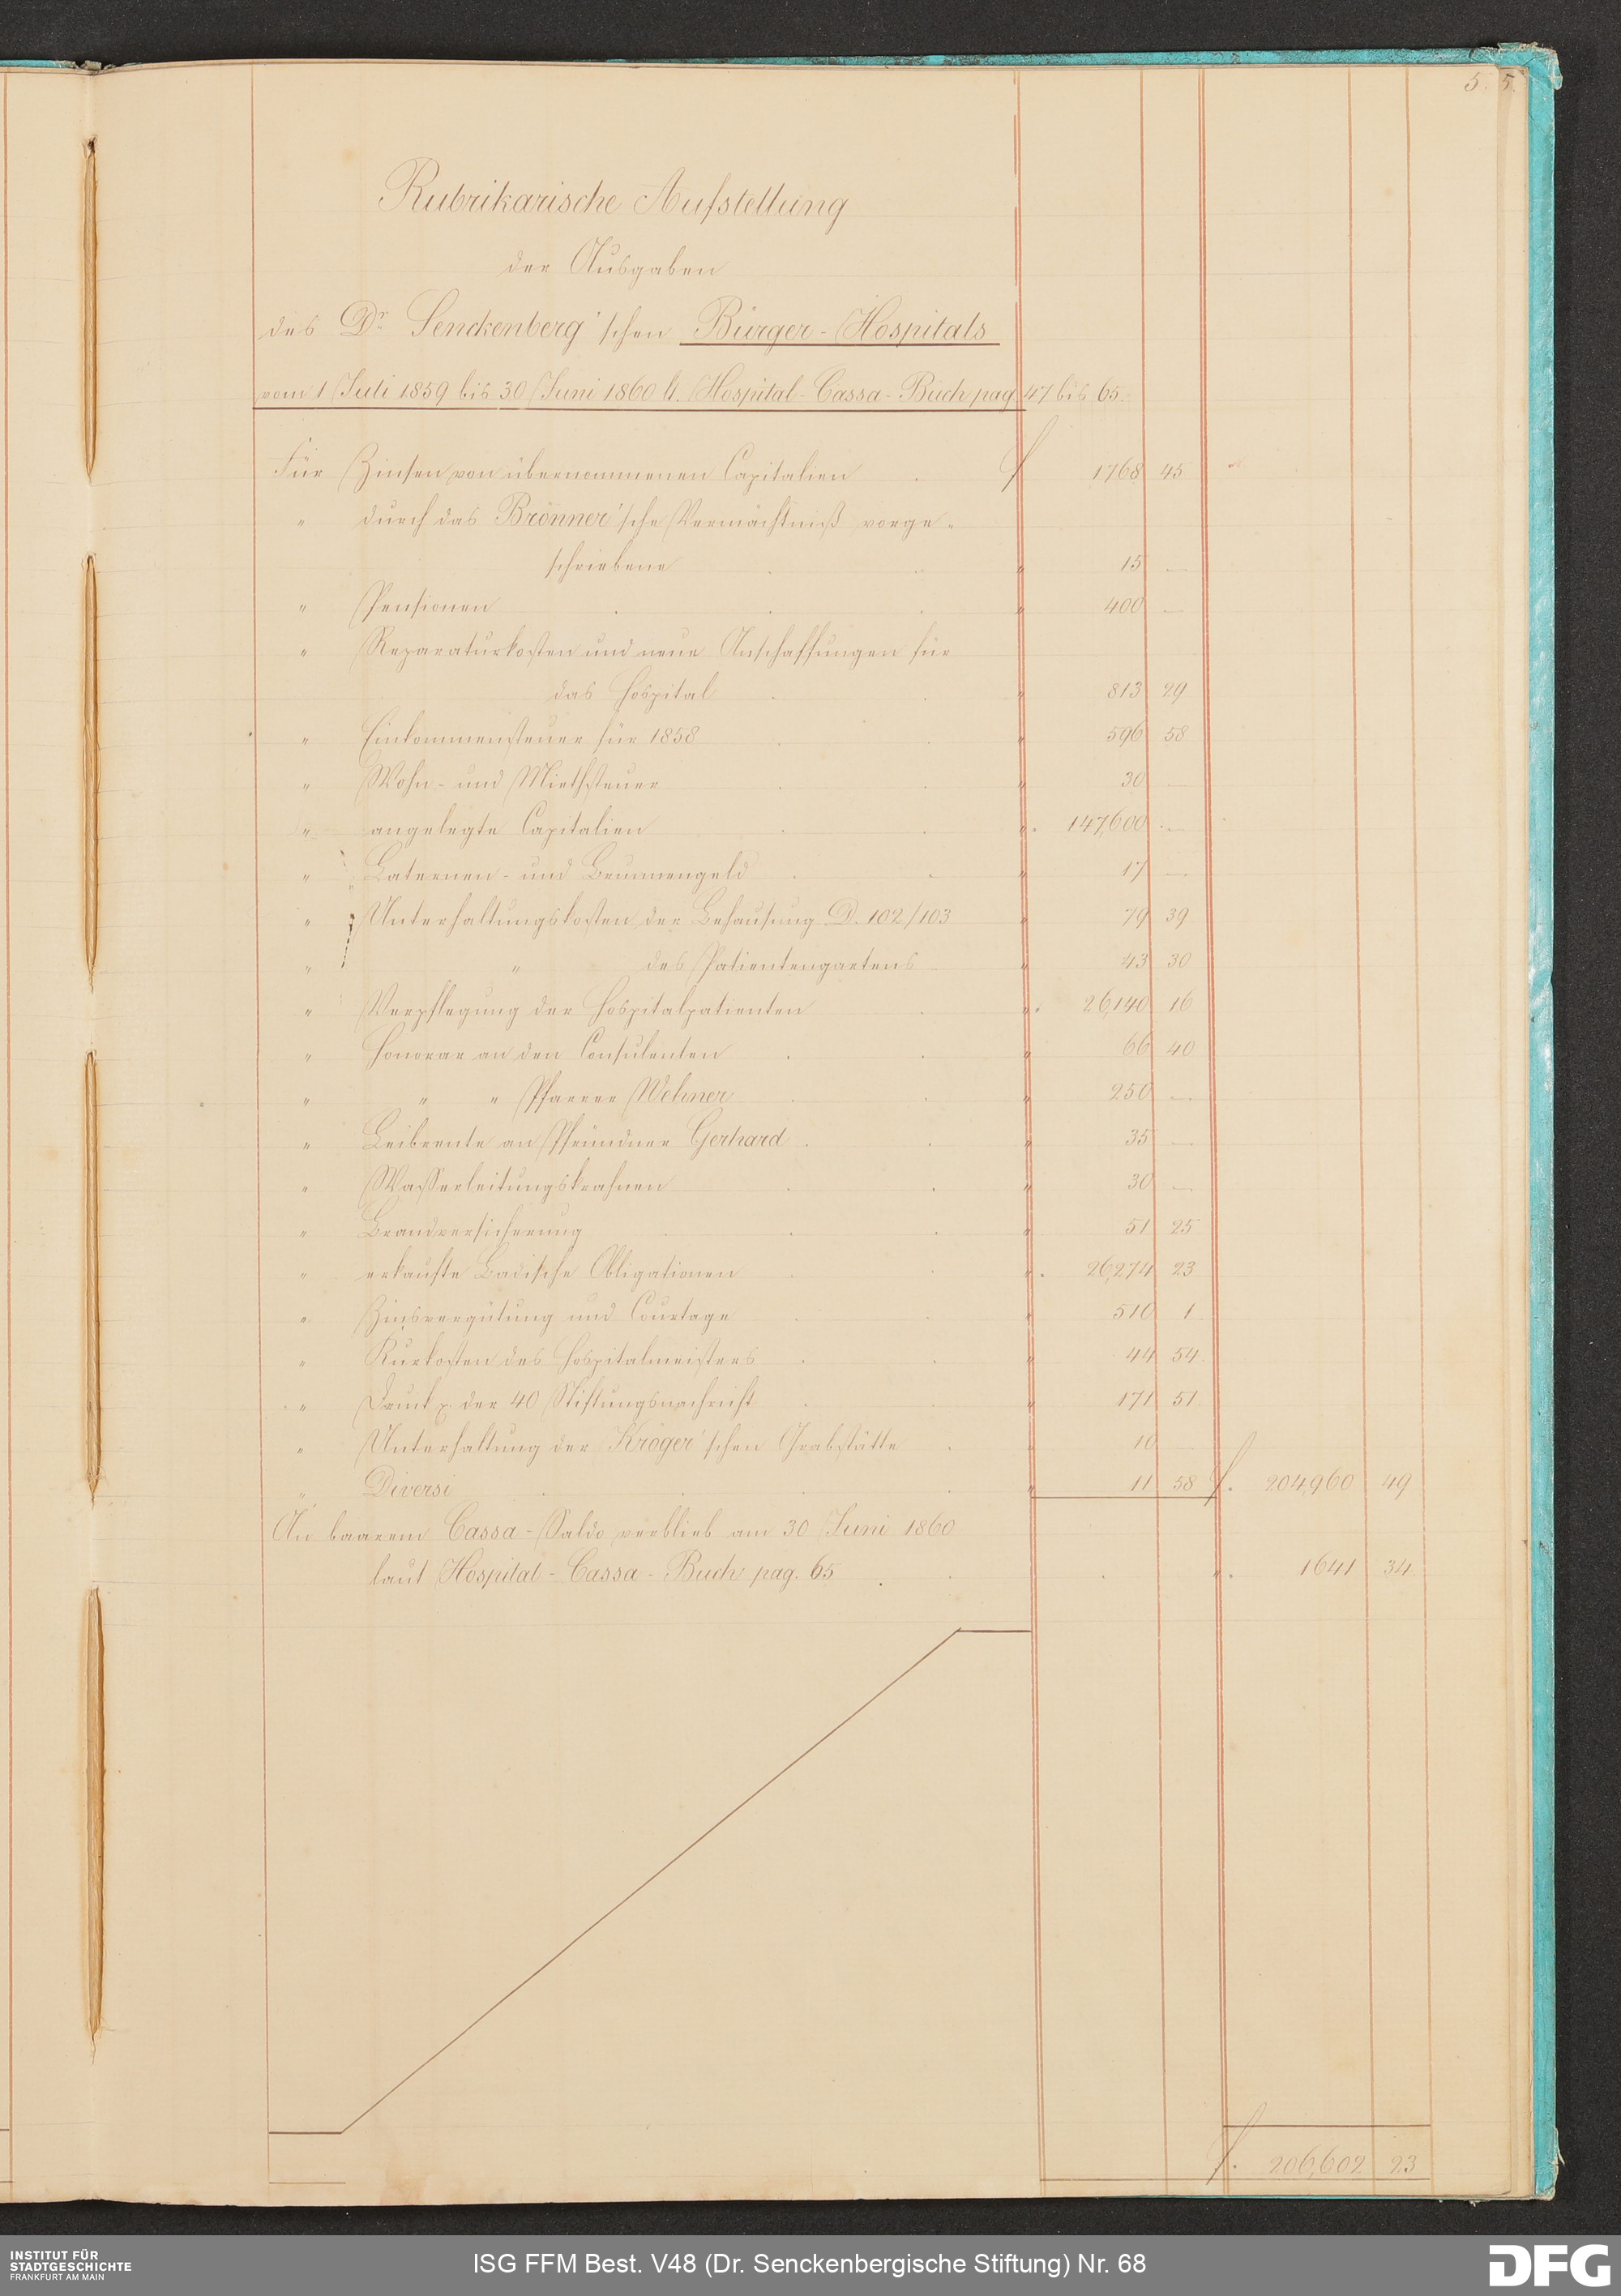 5. 5.
Rubrikarische Aufstellung
der Ausgaben
des Dr. Senckenberg'schen Bürger-Hospitals
vom 1 Juli 1859 bis 30 Juni 1860 lt. Hospital-Cassa-Buch pag 47 bis 65.
Für Zinsen von übernommenen Capitalien . f 1768 45
" durch das Brönner'sche Vermächtniß vorge-
schriebene . . " 15 —
" Pensionen . . . " 400 —
" Reparaturkosten und neue Anschaffungen für
das Hospital . . " 813 29
" Einkommensteuer für 1858 . . " 596 58
" Wohn- und Miethsteuer . . " 30 —
" angelegte Capitalien . . " 147,600 —
" Laternen- und Brunnengeld . . " 17 —
" Unterhaltungskosten der Behausung D. 102/103 " 79 39
" " des Patientengartens " 43 30
" Verpflegung der Hospitalpatienten . " 26,140 16
" Honorar an den Consulenten . . " 66 40
" " " Pfarrer Wehner . . " 250 —
" Leibrente an Pfründner Gerhard . . " 35 —
" Wasserleitungskrahnen . . " 30 —
" Brandversicherung . . . " 51 25
" erkaufte Badische Obligationen . . " 26,274 23
" Zinsvergütung und Courtage . . " 510 1
" Kurkosten des Hospitalmeisters . . " 44 54
" Druck p. der 40 Stiftungsnachricht . . " 171 51
" Unterhaltung der Kröger'schen Grabstätte . " 10 —
" Diversi . . . . " 11 58 f. 204,960 49
An baarem Cassa-Saldo verblieb am 30 Juni 1860
laut Hospital-Cassa-Buch pag. 65 . . . " 1641 34
f. 206,602 23
INSTITUT FÜR
STADTGESCHICHTE
FRANKFURT AM MAIN
ISG FFM Best. V48 (Dr. Senckenbergische Stiftung) Nr. 68
DFG